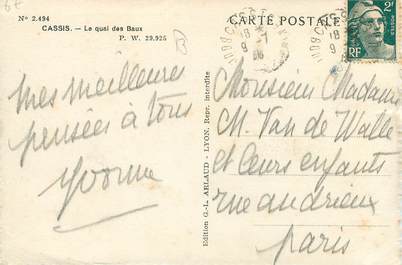 N° 2.494
CASSIS. — Le quai des Baux
P. W. 29.925
CARTE POSTALE
2F
RF
Edition G.-L. ARLAUD - LYON. Repr. interdite
Mes meilleures
pensées à tous
Yvonne
Monsieur Madame
M. Van de Walle
et leurs enfants
rue andrieux
paris